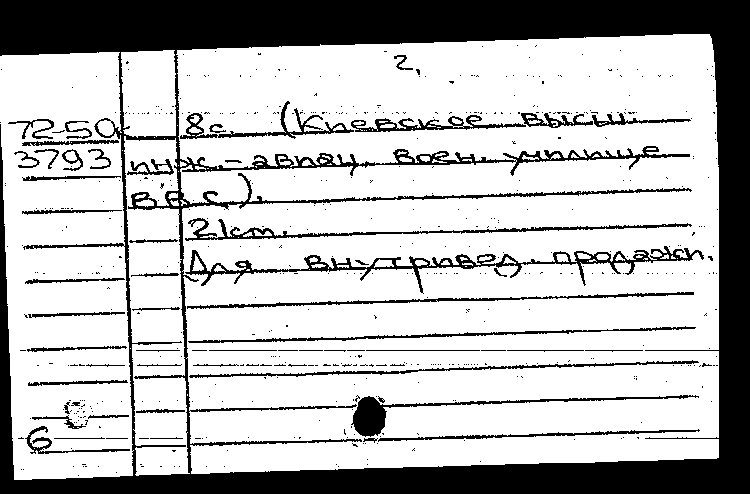 2.
72-50к 8с. (Киевское высш.
3793 инж.-авиац. воен. училище
ВВС).
21см.
Для внутривед. продажи.
6